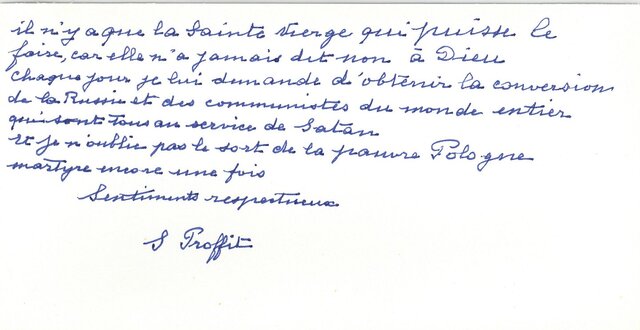 il n'y a que la Sainte Vierge qui puisse le
faire, car elle n'a jamais dit non à Dieu
chaque jour je lui demande d'obtenir la conversion
de la Russie et des communistes du monde entier
qui sont tous au service de Satan
et je n'oublie pas le sort de la pauvre Pologne
martyre encore une fois
Sentiments respectueux
S Proffit